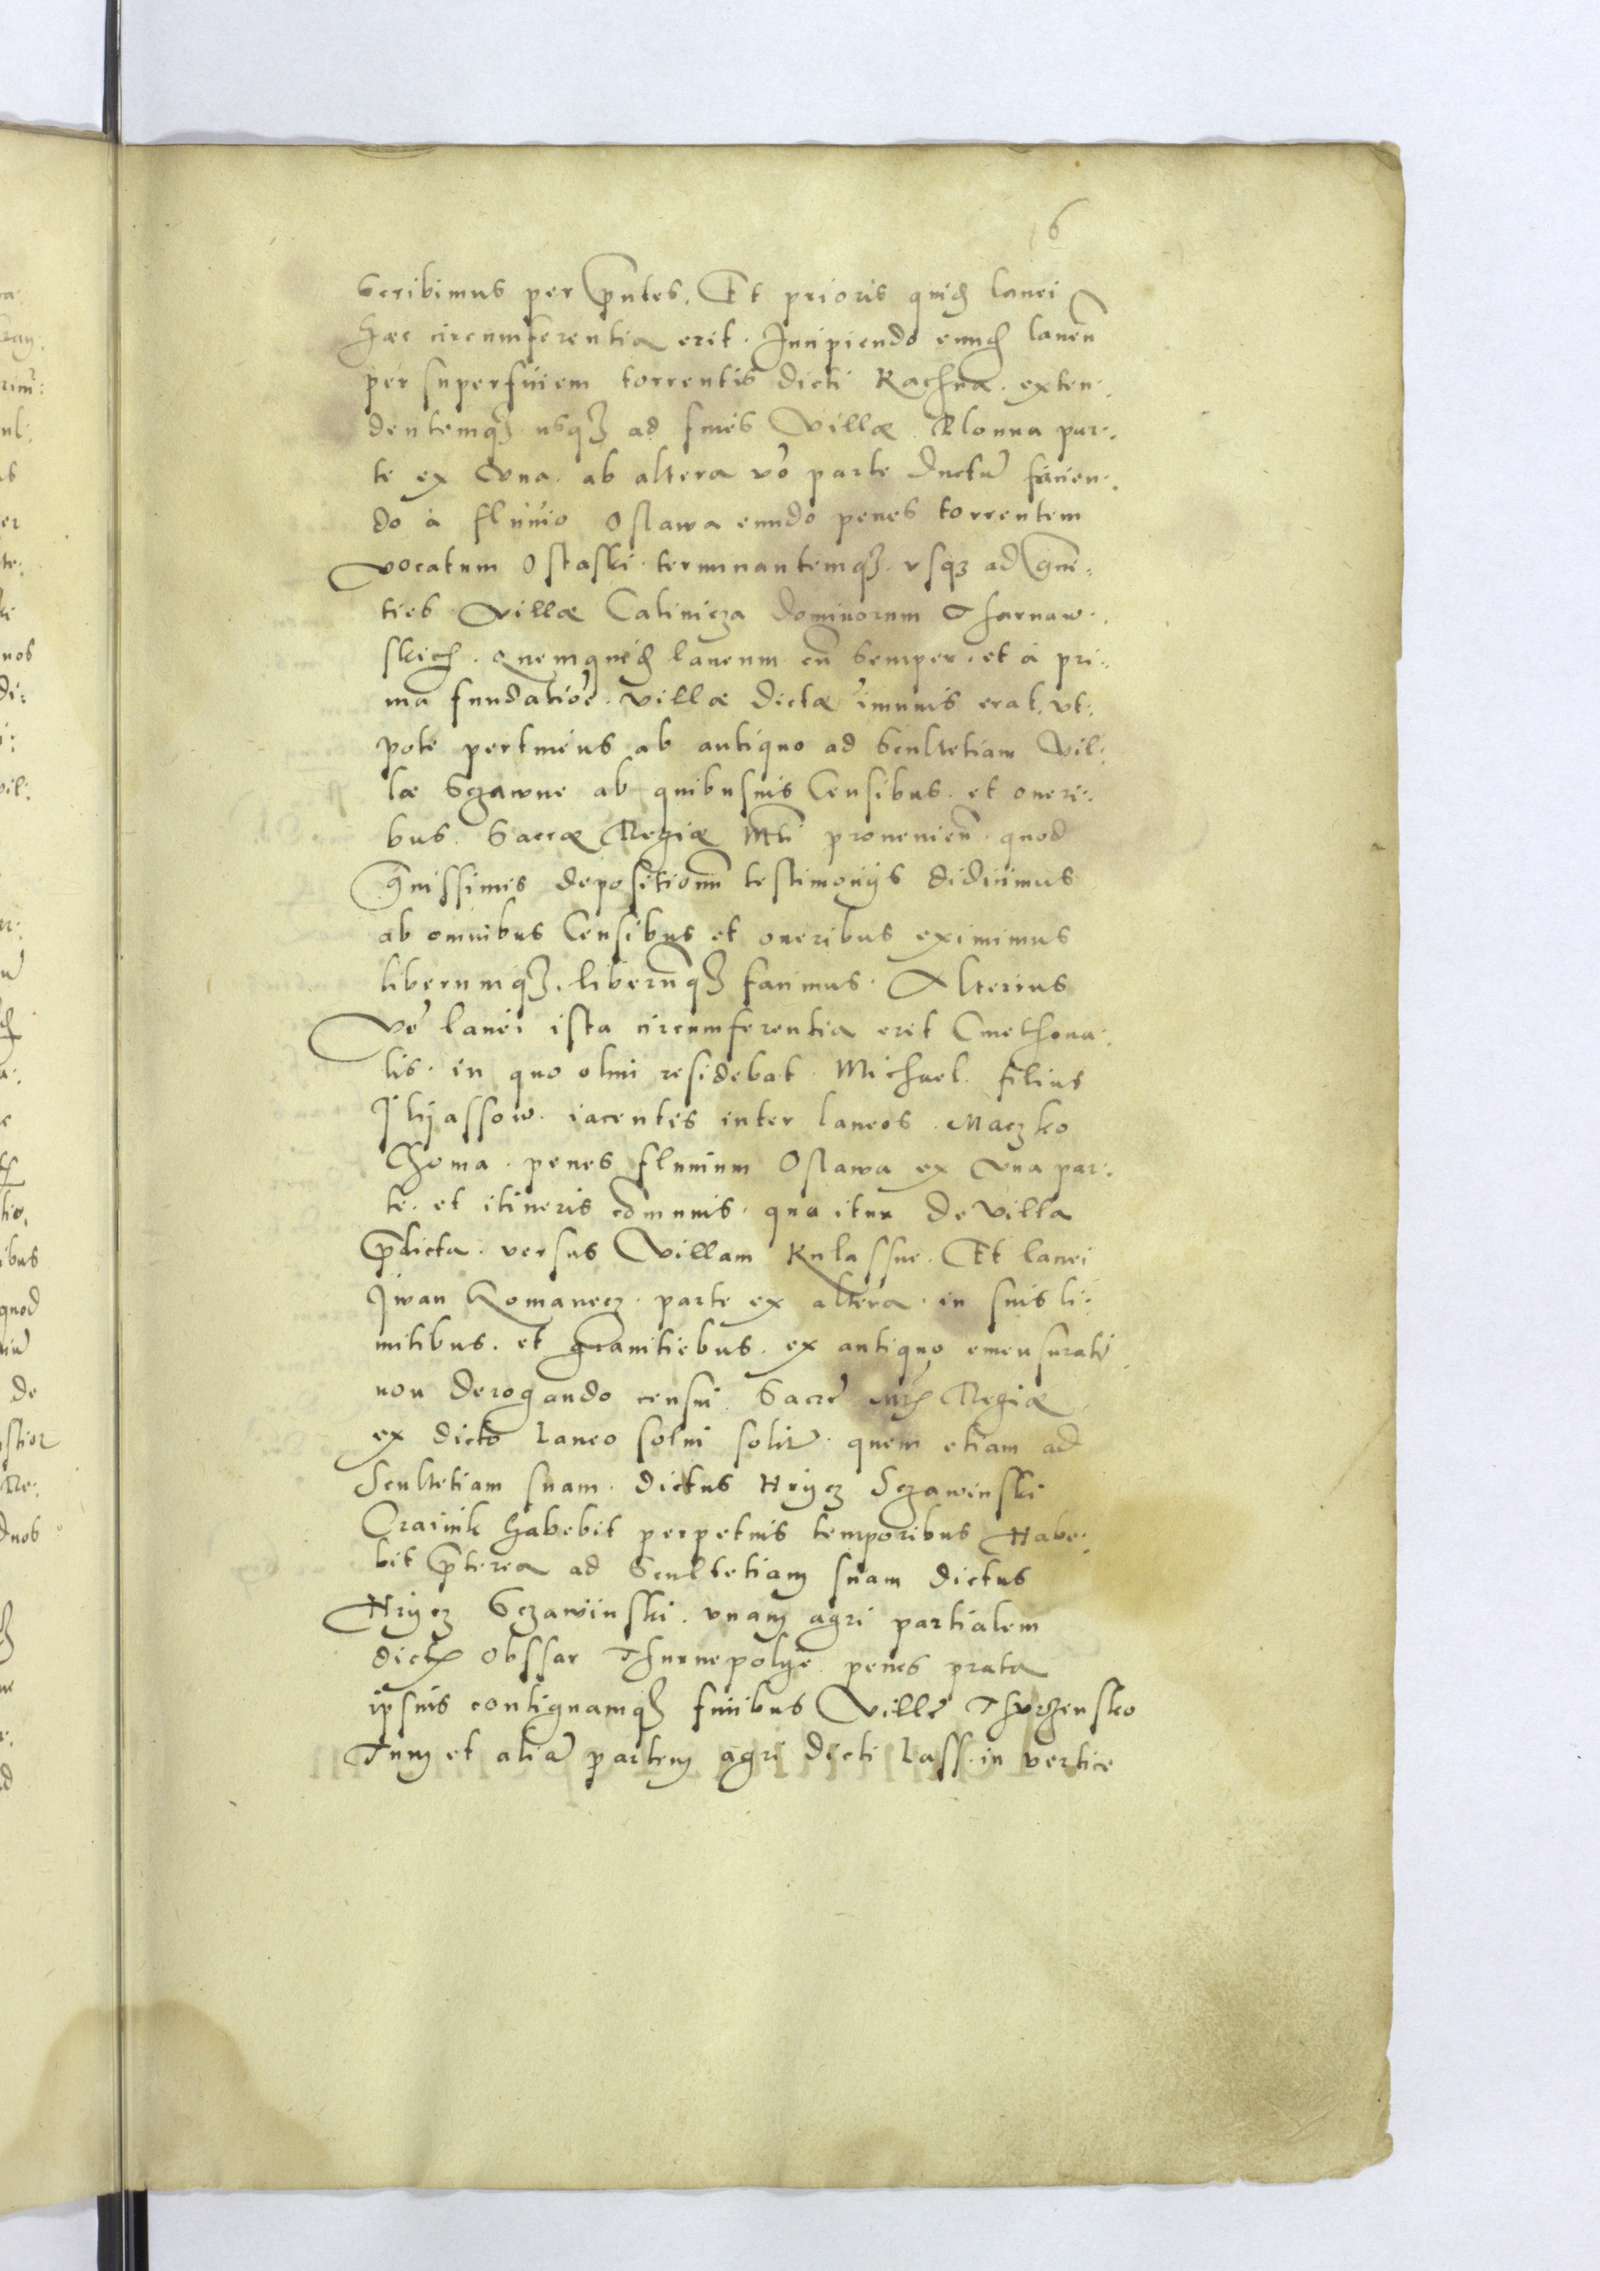 6
scribimus per pñtes. Et prioris quid lanei
hæc circumferentia erit. Incipiendo eund laneũ
per superficiem torrentis dicti Rachna. exten:
dentemqз usqз ad fines Villæ Mlonna par:
te ex Vna. ab altera vo parte ductũ facien:
do à fluuio Oslawa eundo penes torrentem
vocatum Ostaski. terminantemqз. vsqз ad grani:
ties. Villæ Calinicza Dominorum Tharnaw:
skich. Quemquid laneum. cũ semper. et à pri:
ma fundatiõe. villæ dictæ imunis erat, vt:
pote pertinens ab antiquo ad Scultetiam Vil:
læ Sczawne ab quibusuis Censibus. et oneri:
bus. Sacræ Regiæ Mti prouenieñ. quod
grauissimis depositionũ testimonijs didicimus
ab omnibus Censibus et oneribus eximimus
liberumqз. liberũqз facimus. Alterius
Vo lanei ista circumferentia erit Cmethona:
lis. in quo olim residebat. Michael. filius
Ihijassow. iacentis inter laneos. Maczko
Choma. penes fluuium Oslawa ex Vna par:
te. et itineris cõmunis. qua itur de villa
pdicta. versus Villam Kulassne. Et lanei
Iwan Romanecz. parte ex altera. in suis li:
mitibus. et graniciebus. ex antiquo emensurati
non derogando censui. Sacrę Regiæ
ex dicto laneo solui solitũ. quem etiam ad
Scultetiam suam. dictus Hrycz Sczawinski
Crainik habebit perpetuis temporibus Habe:
bit pterea ad Scultetiam suam dictus
Hrycz Sczawinski. vnam agri partialem
dict Obssar Thurnepolye penes prata
ipsius contiguamqз finibus Villę Thurzensko
Tum et aliã partem agri dicti lass. in vertice